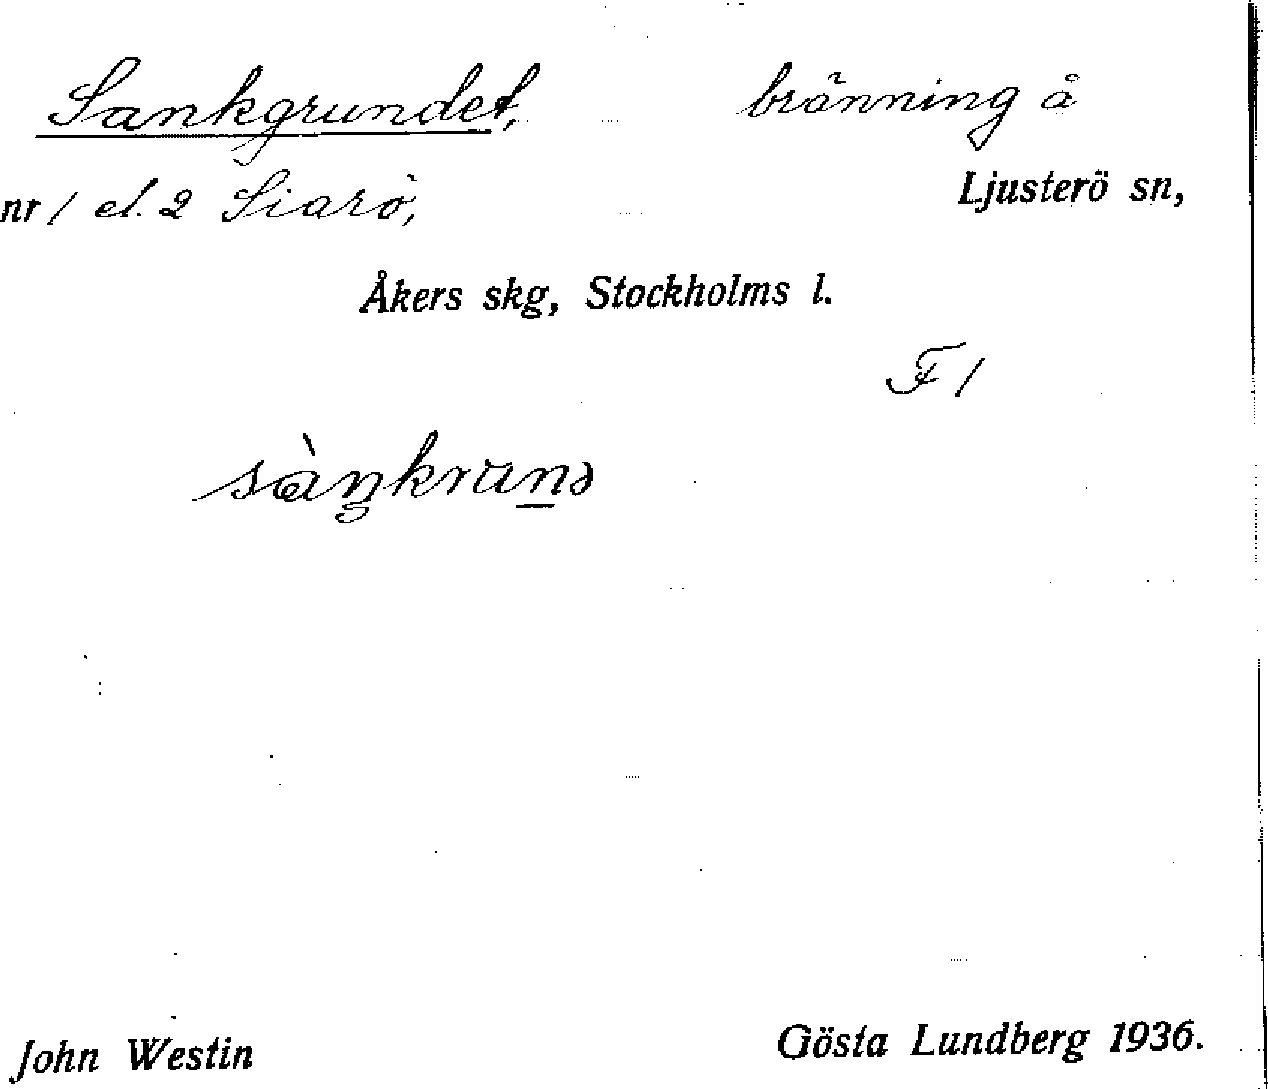 Sankgrundet, bränning å
nr 1 el. 2 Siarö, Ljusterö sn,
Åkers skg, Stockholms l.
F 1
sàŋkrun̲ə
John Westin Gösta Lundberg 1936.